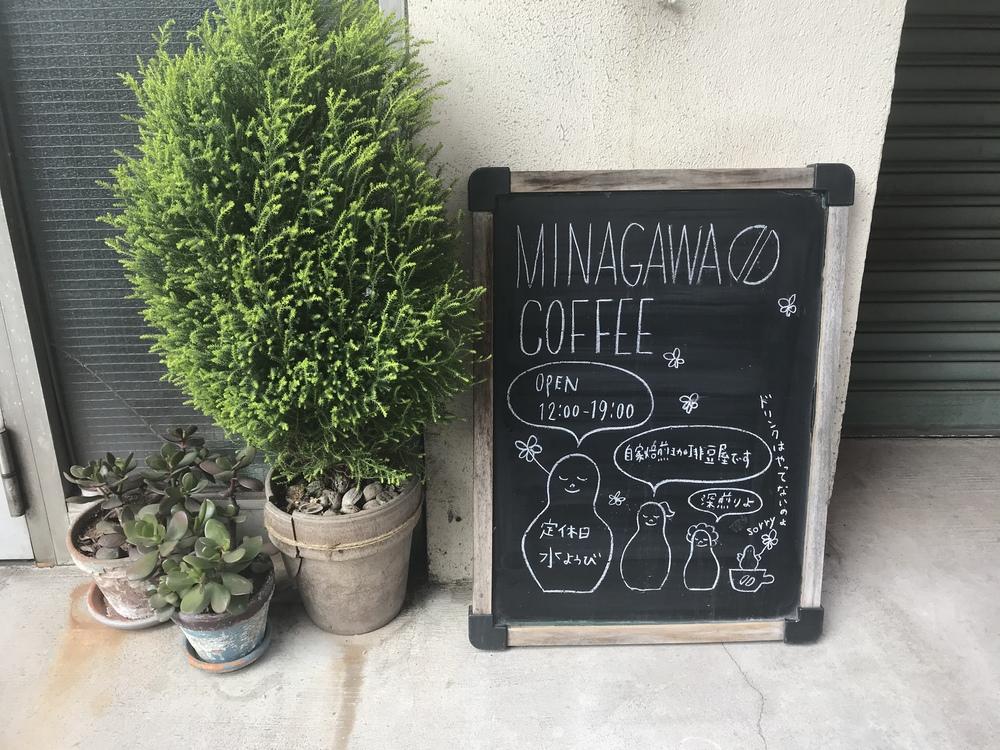 MINAGAWA
COFFEE
OPEN
12:00-19:00
自家焙煎珈琲豆屋です
深煎りよ
ドリンクはやってないのよ
sorry
定休日
水ようび